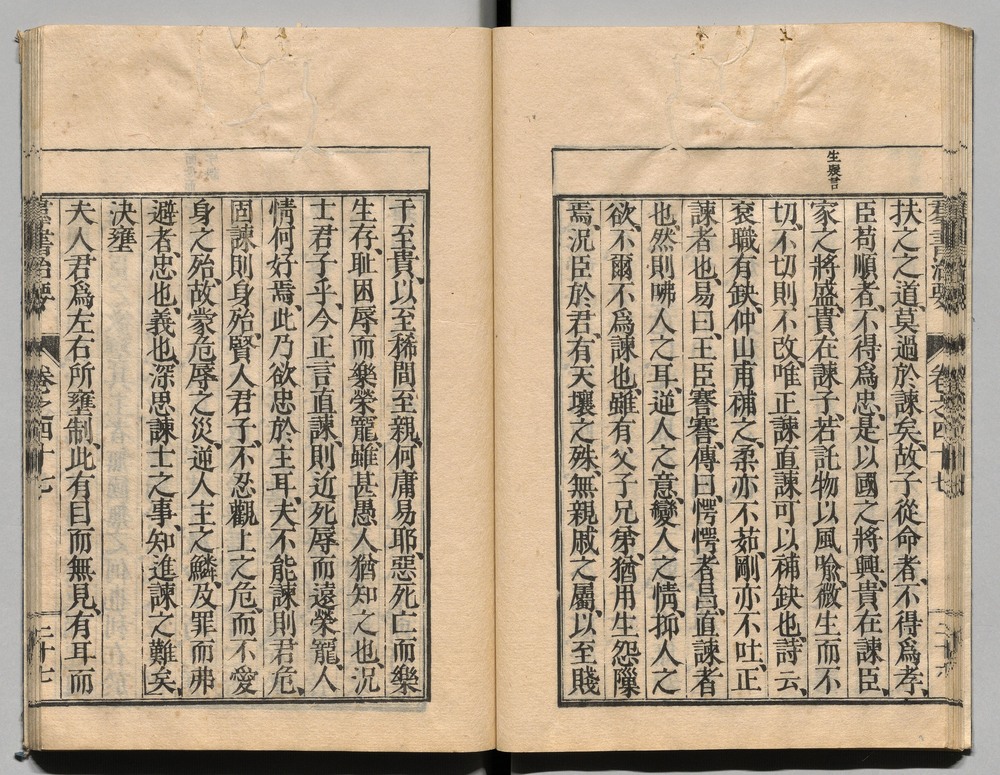 扶之之道莫過於諫矣故子從命者不得爲孝、
臣苟順者、不得爲忠、是以國之將興、貴在諫臣、
家之將盛、貴在諫子、若託物以風喩、微生而不
切、不切則不改、唯正諫直諫可以補缺也、詩云、
袞職有缺、仲山甫補之、柔亦不茹、剛亦不吐、正
諫者也、易曰、王臣謇謇、傳曰、愕愕者昌、直諫者
也、然則咈人之耳、逆人之意、變人之情、抑人之
欲、不爾不爲諫也、雖有父子兄弟、猶用生怨隟
焉、況臣於君、有天壤之殊、無親戚之屬、以至賤
干至貴、以至稀間至親、何庸易耶、惡死亡而樂
生存、耻困辱而樂榮寵、雖甚愚人猶知之也、況
士君子乎、今正言直諫、則近死辱而遠榮寵、人
情何好焉、此乃欲忠於主耳、夫不能諫則君危、
固諫則身殆、賢人君子、不忍觀上之危、而不愛
身之殆、故蒙危辱之災、逆人主之鱗、及罪而弗
避者、忠也、義也、深思諫士之事、知進諫之難矣、
決壅
夫人君爲左右所壅制、此有目而無見、有耳而
羣書治要
卷之四十七
二十七